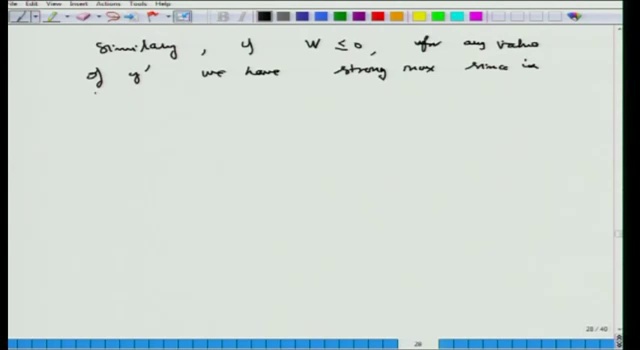 View Insert Actions Tools Help
Similary, if W ≤ 0, for any value
of y' we have strong max since in
28 / 40
28